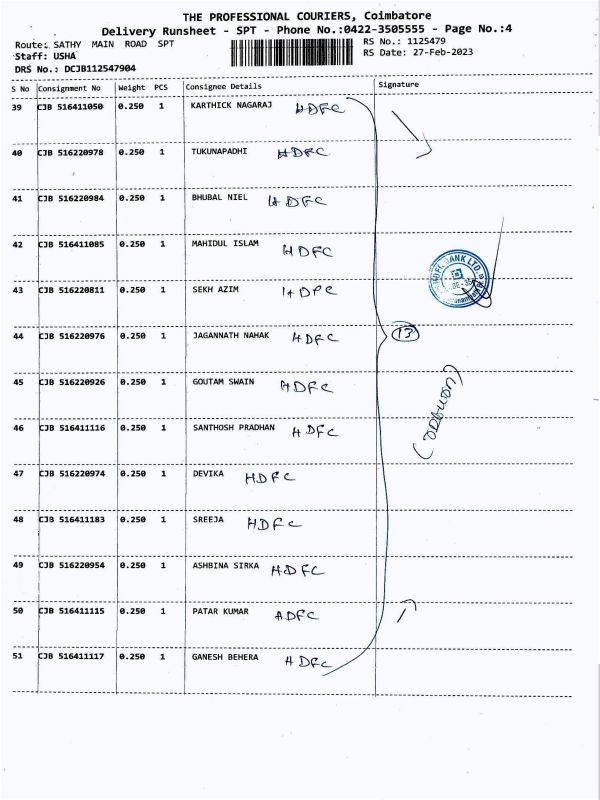 THE PROFESSIONAL COURIERS, Coimbatore
Delivery Runsheet - SPT - Phone No.:0422-3505555 - Page No.:4
Route: SATHY MAIN ROAD SPT
RS No.: 1125479
Staff: USHA
RS Date: 27-Feb-2023
DRS No.: DCJB112547904
S No Consignment No Weight PCS Consignee Details Signature
39 CJB 516411050 0.250 1 KARTHICK NAGARAJ HDFC
40 CJB 516220978 0.250 1 TUKUNAPADHI HDFC
41 CJB 516220984 0.250 1 BHUBAL NIEL HDFC
42 CJB 516411085 0.250 1 MAHIDUL ISLAM HDFC
43 CJB 516220811 0.250 1 SEKH AZIM HDFC
44 CJB 516220976 0.250 1 JAGANNATH NAHAK HDFC
13
45 CJB 516220926 0.250 1 GOUTAM SWAIN HDFC
46 CJB 516411116 0.250 1 SANTHOSH PRADHAN HDFC
47 CJB 516220974 0.250 1 DEVIKA HDFC
48 CJB 516411183 0.250 1 SREEJA HDFC
49 CJB 516220954 0.250 1 ASHBINA SIRKA HDFC
50 CJB 516411115 0.250 1 PATAR KUMAR HDFC
51 CJB 516411117 0.250 1 GANESH BEHERA HDFC